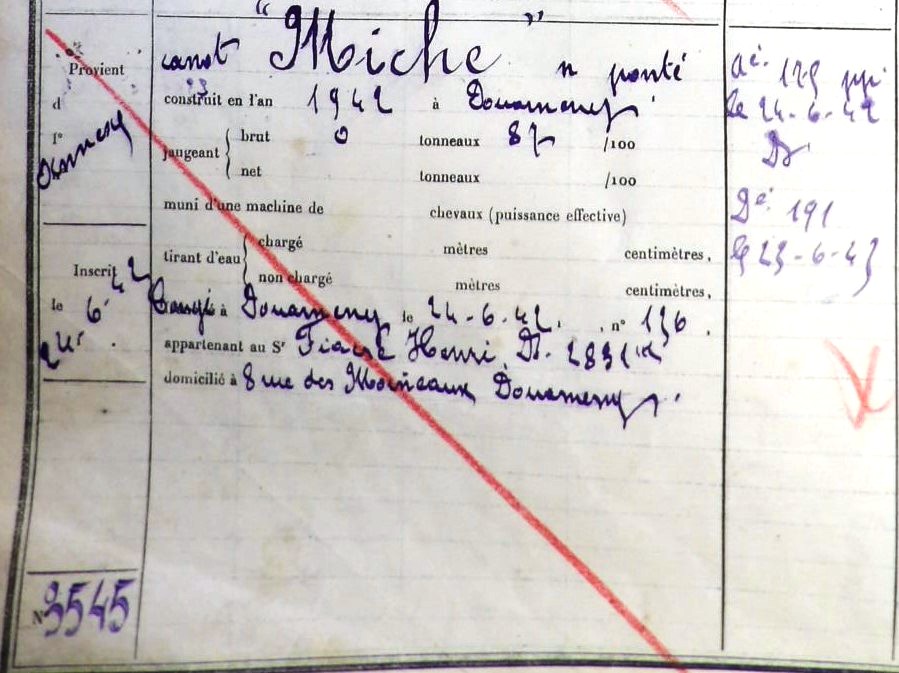 canot "Miche" n ponté
Provient
d
l°
construit en l'an 1942 à Douarnenez
jaugeant { brut 0 tonneaux 87 /100
net tonneaux /100
muni d'une machine de chevaux (puissance effective)
tirant d'eau { chargé mètres centimètres,
non chargé mètres centimètres,
Inscrit
le 6
24
42
à Douarnenez le 24-6-42, n° 136.
appartenant au Sr Henri Dz.
domicilié à 8 rue des Moineaux Douarnenez.
N° 3545
Aé. 179
le 24-6-42
Dz
Dé. 191
le 23-6-43